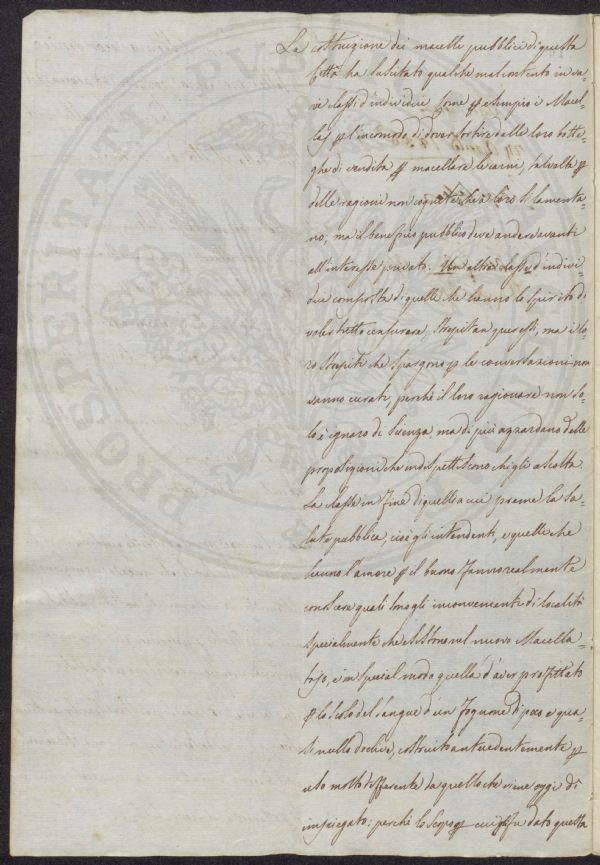 La costruzione dei macelli pubblici di questa
Città ha suscitato qualche malcontento in va-
rie classi d'individui. Come p esempio i Macel-
laj p l'incomodo di dover sortire dalle loro botte-
ghe di vendita p macellare le carni, talvolta p
delle ragioni non cognite che a loro si lamenta-
no, ma il beneficio pubblico deve andare avanti
all'interesse privato. Un altra classe d'indivi-
dui composta di quelli che hanno lo spirito di
voler tutto censurare. Strepitan questi, ma i lo-
ro strepiti che spargono p le conversazioni non
sanno curati, perché il loro ragionare non so-
lo è ignaro di Scienza, ma di più azzardano delle
proposizioni che indispettiscono chi gli ascolta.
La classe in fine di quelli a cui preme la Sa-
lute pubblica, cioè gli intendenti, e quelli che
hanno l'amore p il buono fanno realmente
conoscere quali sono gli inconvenienti di località
specialmente che esistono nel nuovo Macella-
tojo, e in special modo quella d'aver profittato
p lo scolo del sangue d'un Fognone di poco e qua-
si nullo declive, costruito antecedentemente p
uso molto differente da quello che viene oggi di
impiegato: perché lo scopo p cui fu dato questa
PROSPERITATI PUB